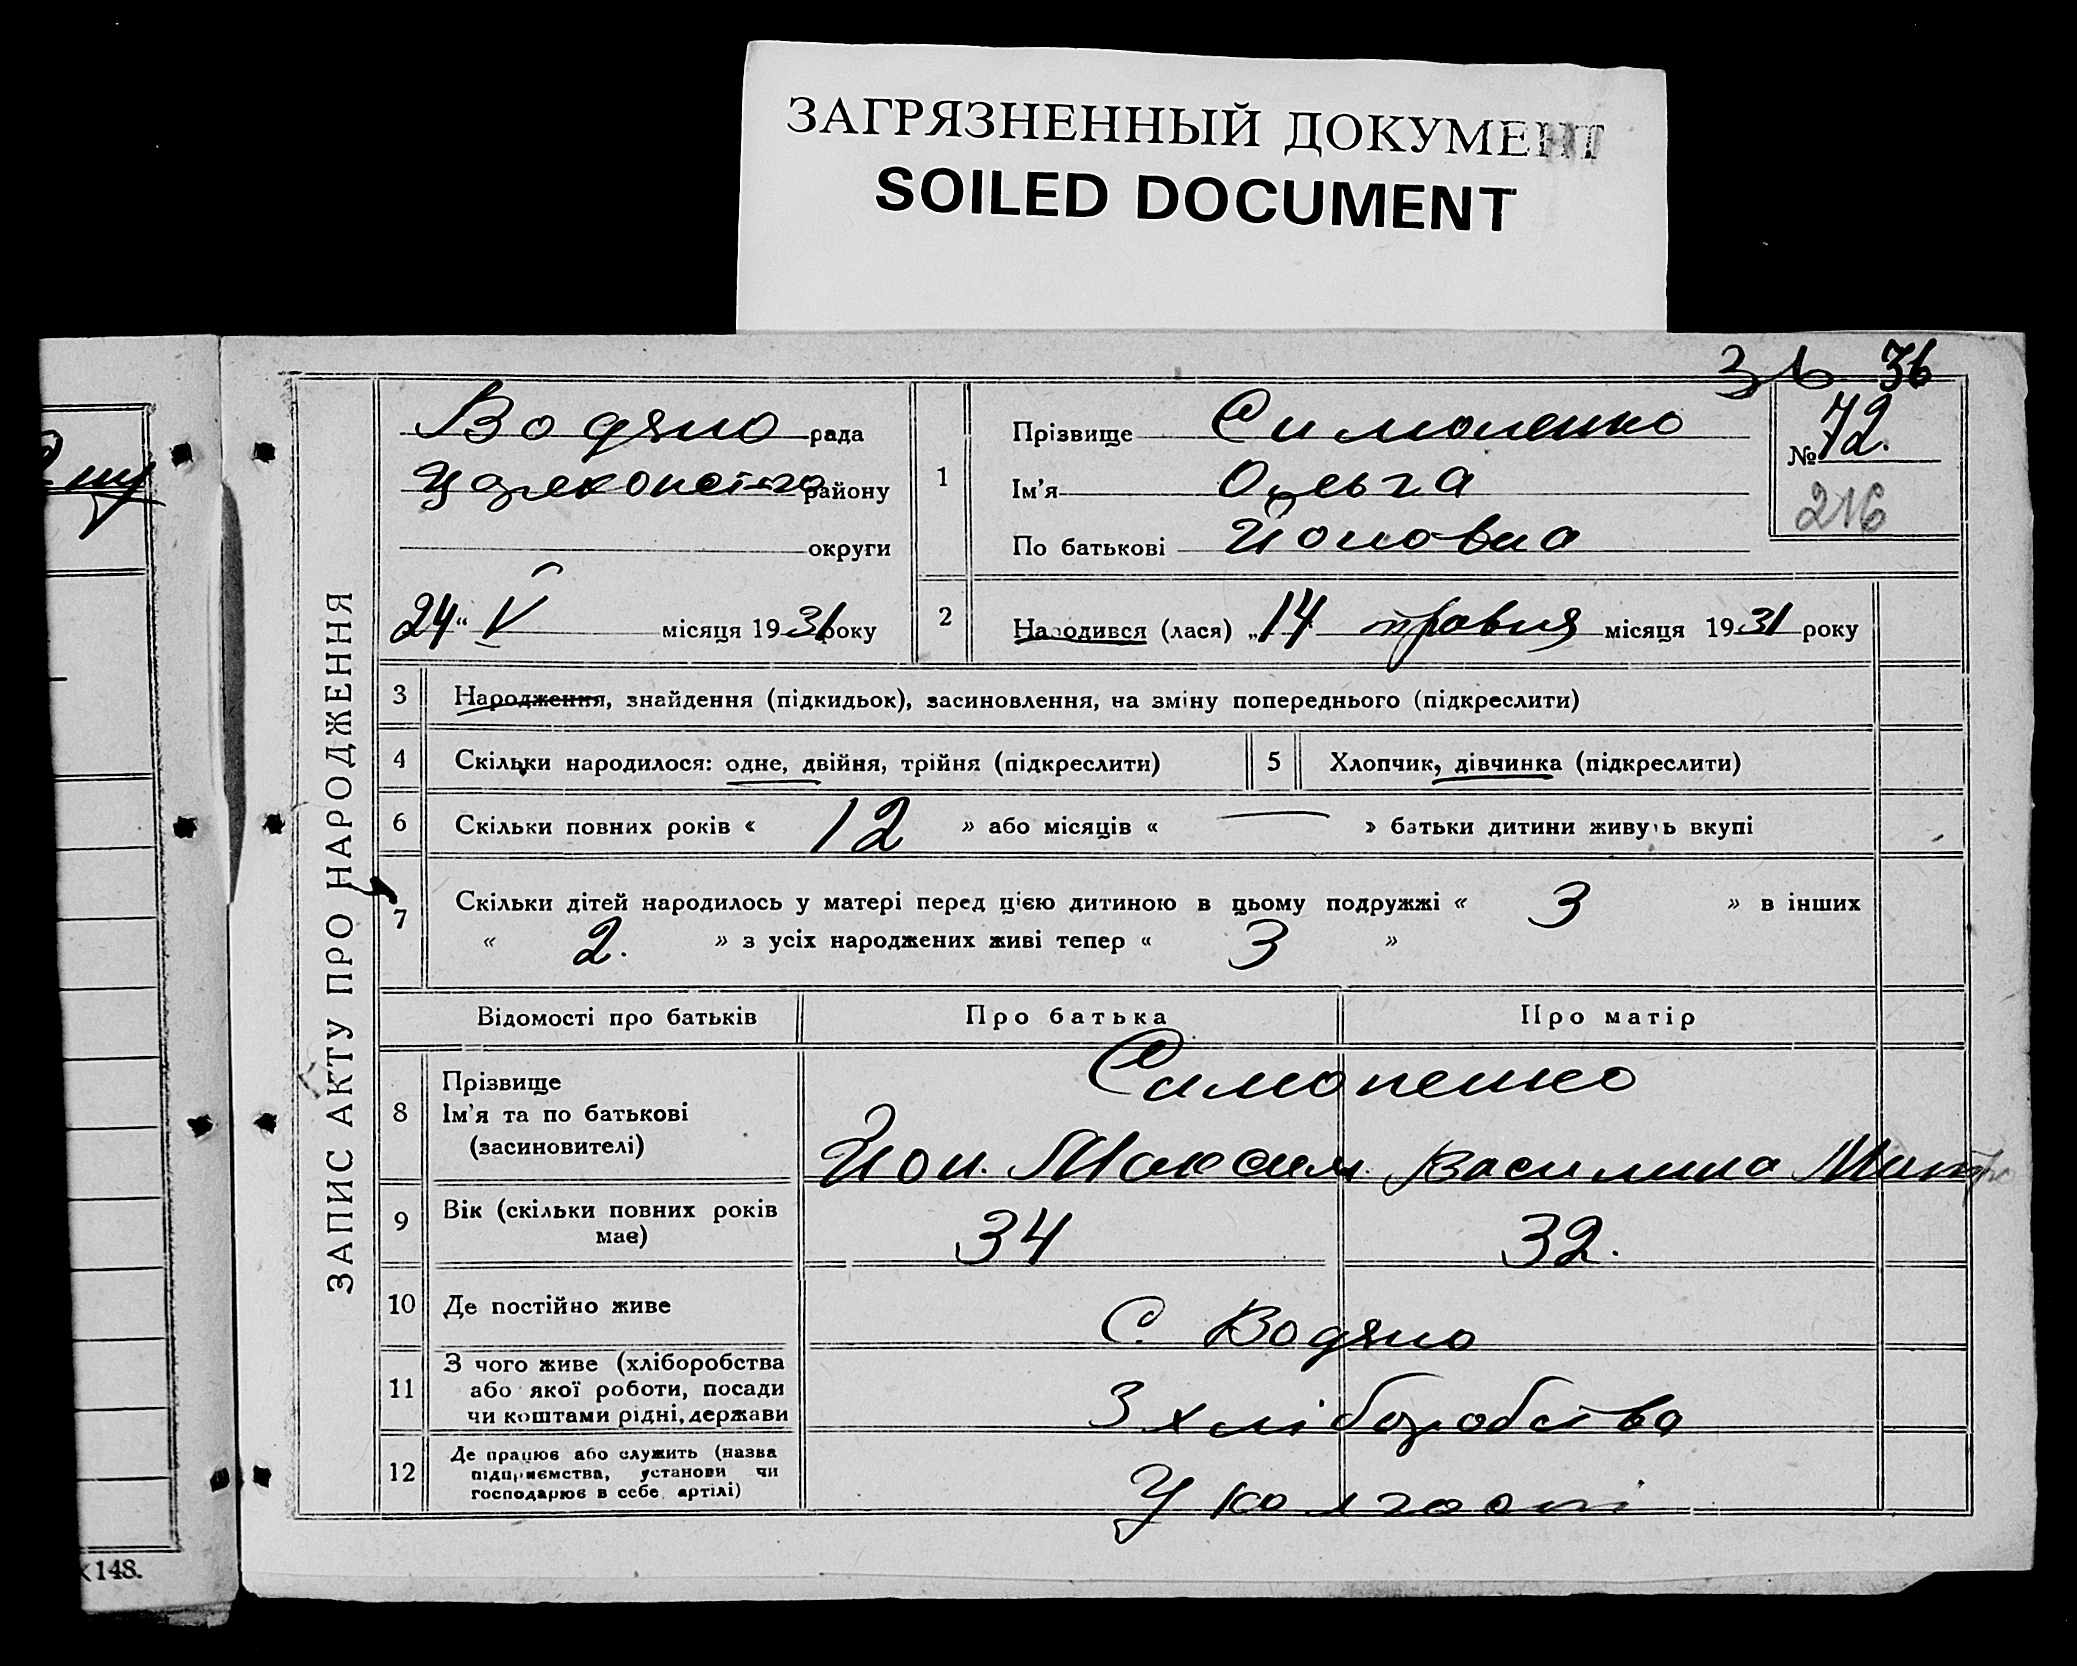 ЗАГРЯЗНЕННЫЙ ДОКУМЕНТ
SOILED DOCUMENT
36
ЗАПИС АКТУ ПРО НАРОДЖЕННЯ
Водяно рада
району
округи
24 " V місяця 1931 року
1
Прізвище Симоненко
Ім'я Ольга
По батькові Йоновна
№ 72.
216
2 Народився (лася) „14 травня місяця 1931 року
3 Народження, знайдення (підкидьок), засиновлення, на зміну попереднього (підкреслити)
4 Скільки народилося: одне, двійня, трійня (підкреслити) 5 Хлопчик, дівчинка (підкреслити)
6 Скільки повних років « 12 » або місяців « — » батьки дитини живуть вкупі
7 Скільки дітей народилось у матері перед цією дитиною в цьому подружжі « 3 » в інших
« 2. » з усіх народжених живі тепер « 3 »
Відомості про батьків Про батька Про матір
8 Прізвище
Ім'я та по батькові
(засиновителі)
Симоненко
Йон. Максим. Василина
9 Вік (скільки повних років
має)
34 32.
10 Де постійно живе С. Водяно
11 З чого живе (хліборобства
або якої роботи, посади
чи коштами рідні, держави
З хліборобства
12 Де працює або служить (назва
підприємства, установи чи
господарює в себе, артілі)
У
148.